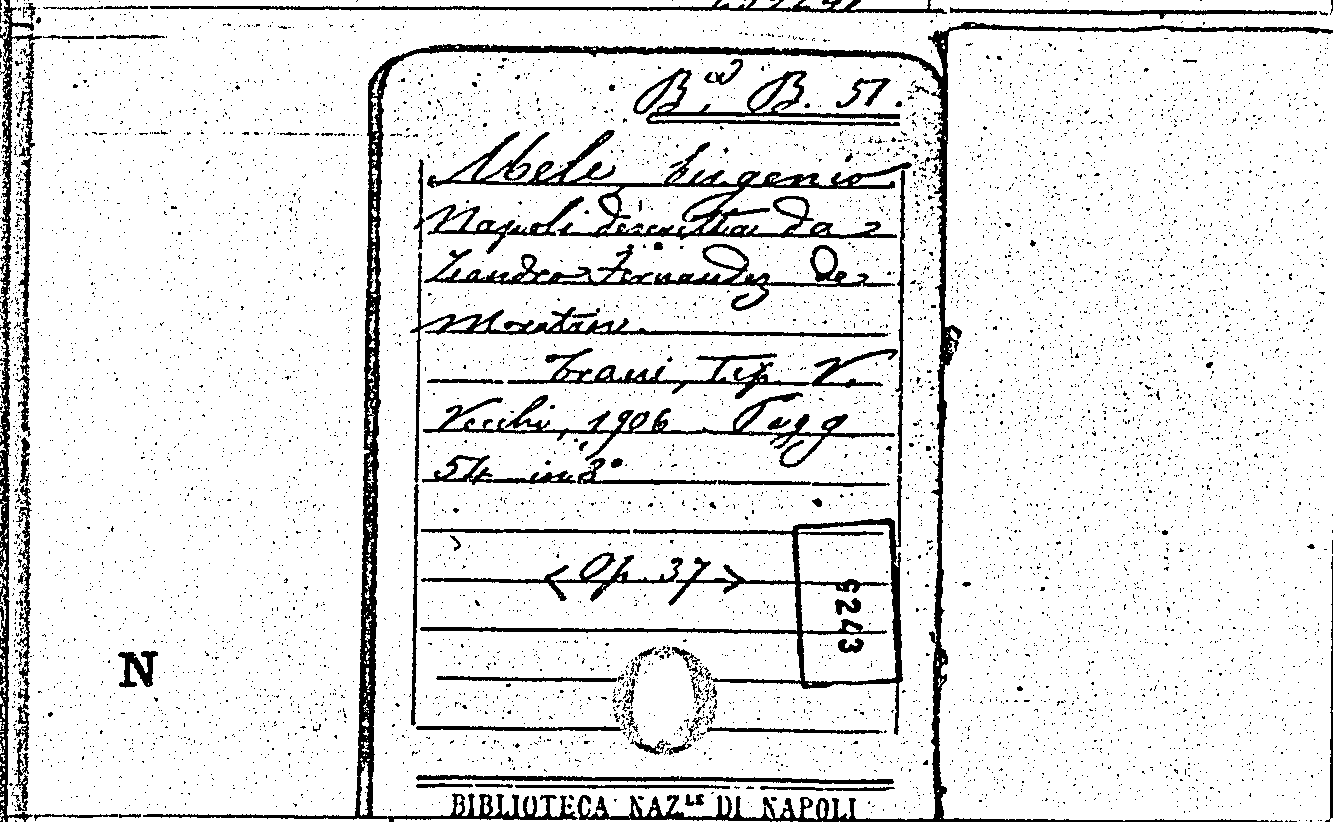 B.ª B. 57.
Mele Eugenio
Napoli descritta da
Leandro Fernandez de
Moratin.
Trani, Tip. V.
Vecchi, 1906. Pagg
54 in 8°
<Op. 37>
9243
N
BIBLIOTECA NAZ.LE DI NAPOLI